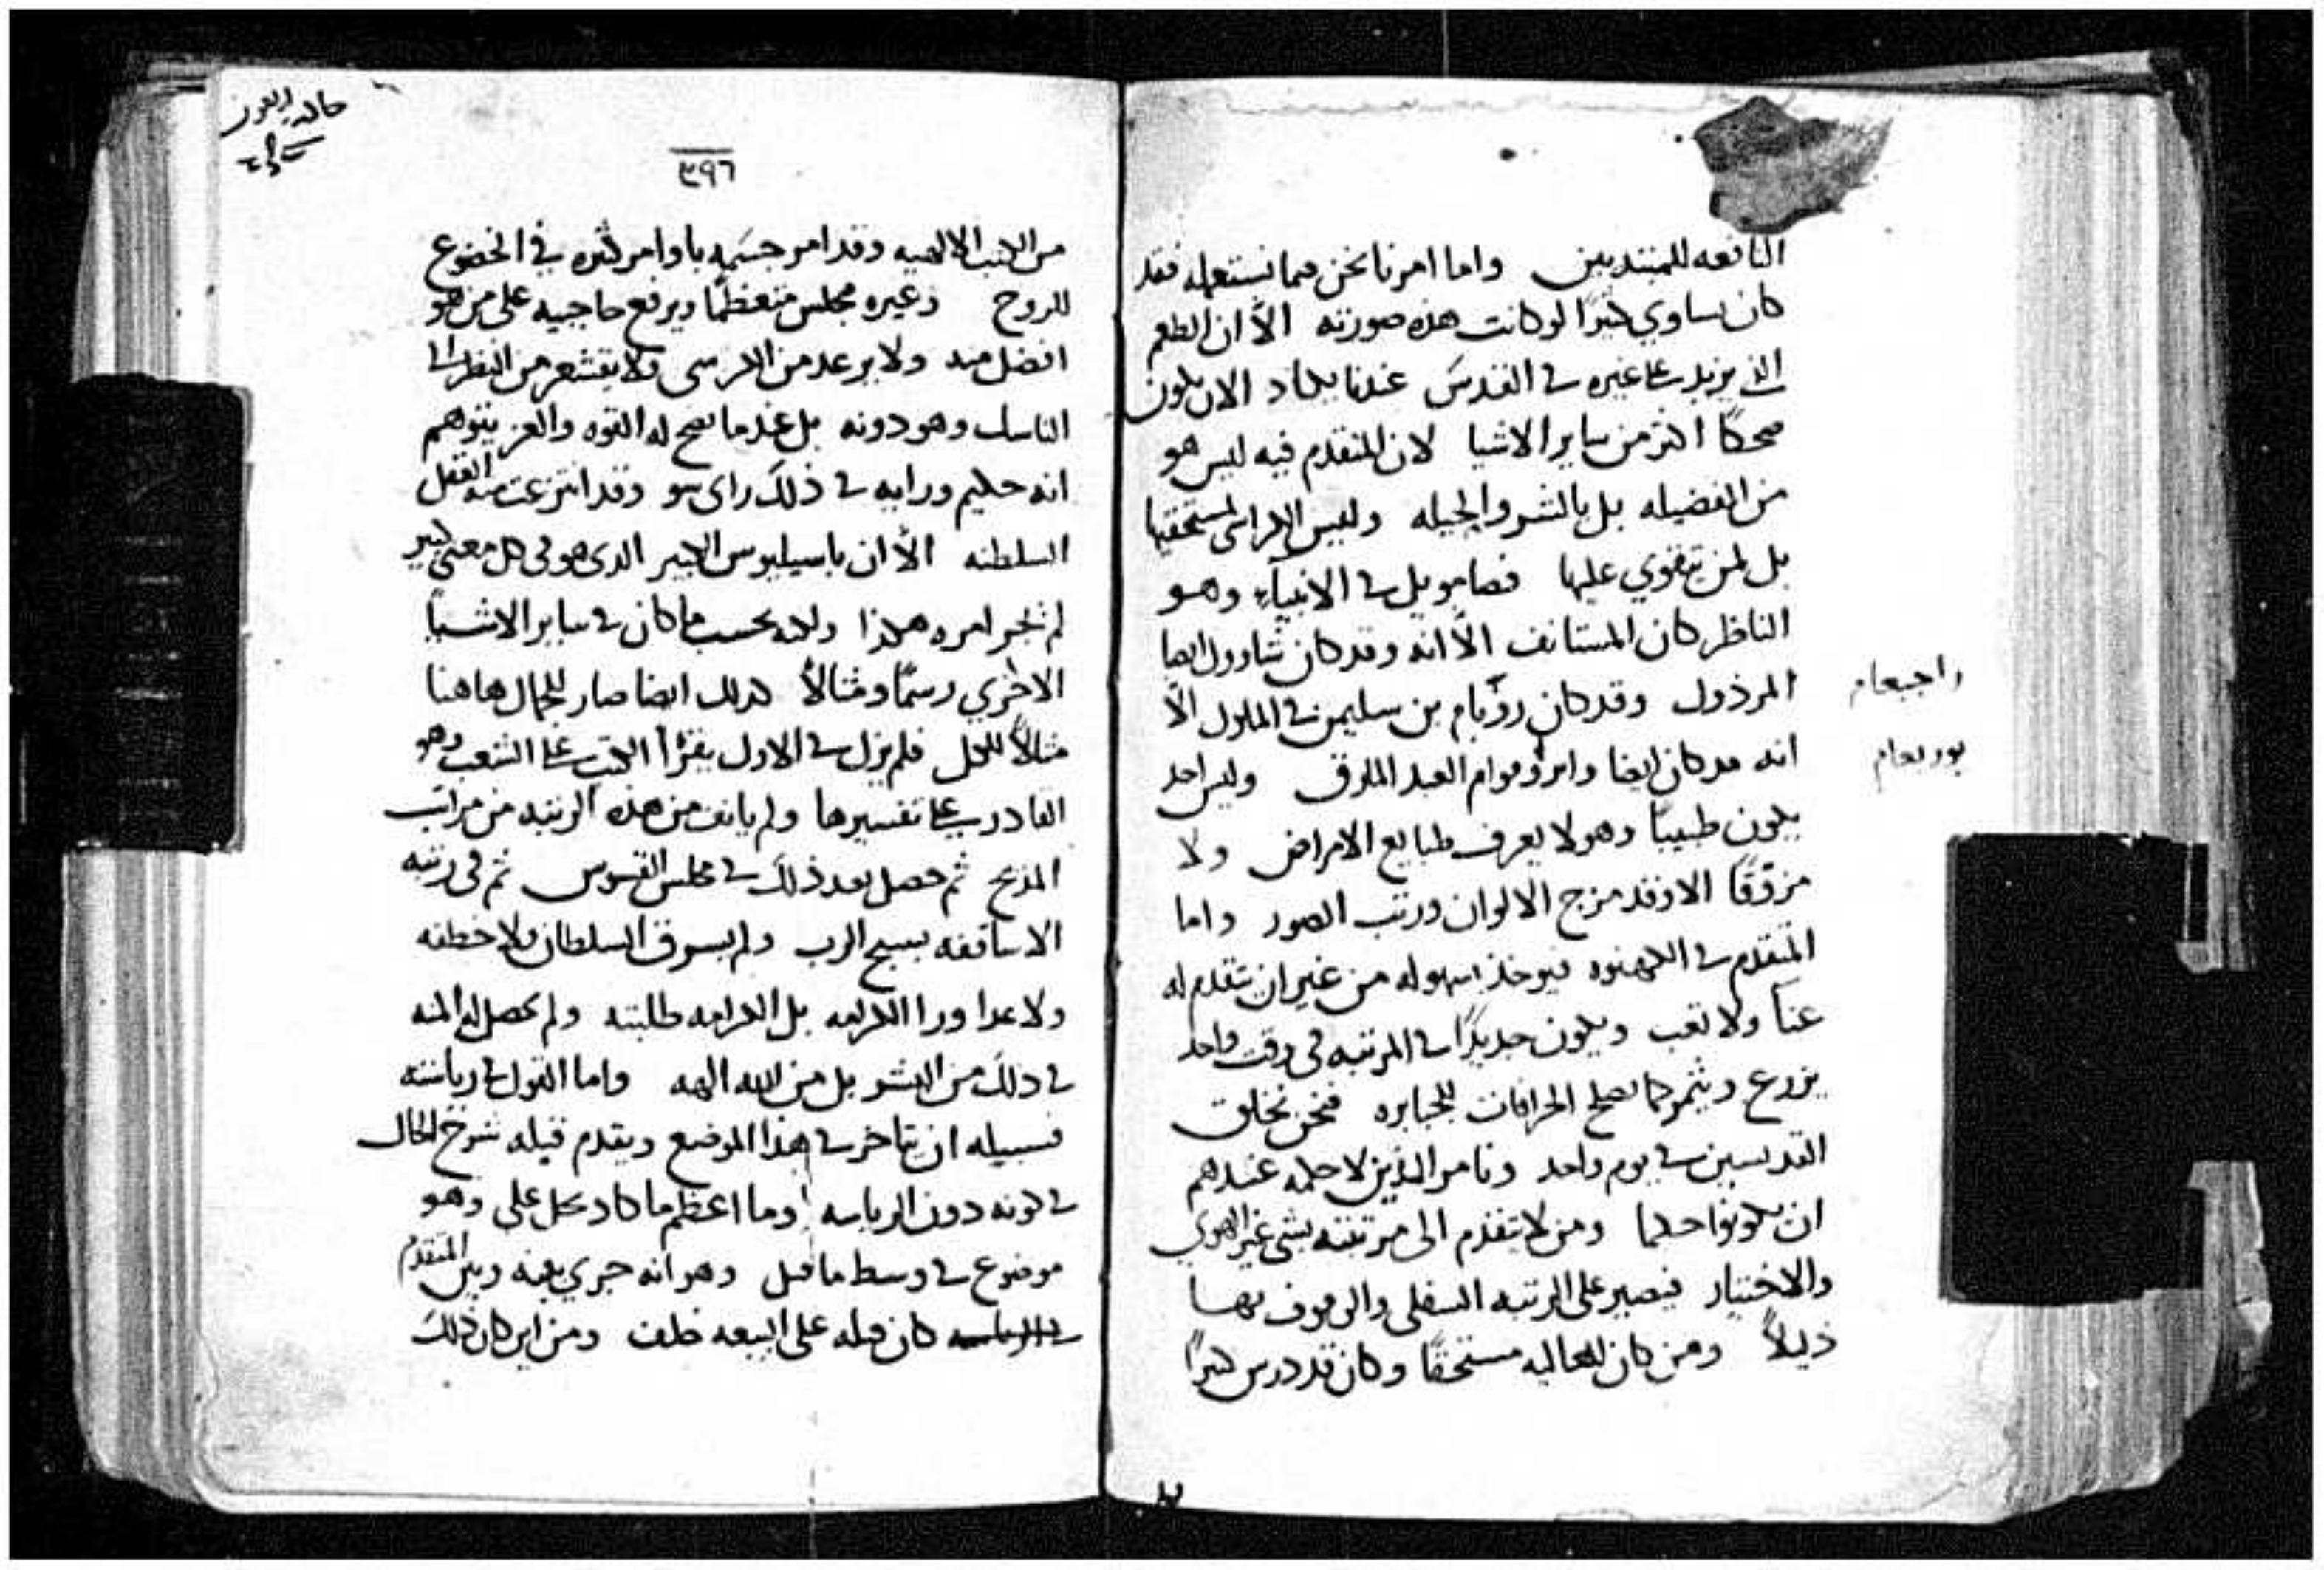 النافعه للمبتديين واما امرنا نحن فما نستعمله فقد
كان يساوي كثيرًا لو كانت هذه صورته الّا ان الطغم
الذي يزيد على غيره في القدس عندنا يكاد الان يكون
ضحكًا اكثر من ساير الاشيا لان المتقدم فيه ليس هو
من الفضيله بل بالشر والحيله وليس الكراسي لمستحقيها
بل لمن يتقوي عليها فصامويل في الانبياء وهو
الناظر كان المستانف الّا انه وقد كان شاوول ايضا
المرذول وقد كان روبام بن سليمن في الملوك الّا
راجبعام
انه قد كان ايضا العبد المارق وليس احد
يوربعام
يكون طبيبًا وهو لا يعرف طبايع الامراض ولا
مزوقًا الا وقد مزج الالوان ورتب الصور واما
المتقدم في الكهنوه فيوخذ بسهوله من غير ان يتقدم له
عنآ ولا تعب ويكون جديدًا في المرتبه في وقت واحد
يزرع ويثمر كما تصلح الخرافات للجبابره فنحن نخلق
القديسين في يوم واحد ونامر الذين لا حكمه عندهم
ان يكونوا حكما ومن لا يتقدم الى مرتبته بشي غير الهوي
والاختيار فيصير على الرتبه السفلى والوقوف بها
ذليلاً ومن كان للعاليه مستحقًا وكان قد درس كثيرًا
٣٩٦
من الكتب الالهيه وقد امر جسمه باوامر كثيره في الخضوع
للروح وغيره يجلس متعظمًا ويرفع حاجبيه على من هو
افضل منه ولا يرعد من الكرسي ولا يقشعر من النظر الى
الناسك وهو دونه بل عندما تصح له القوه والعز يتوهم
انه حكيم ورايه في ذلك راى سو وقد انتزعت منه العقل
السلطنه الّا ان باسيليوس الكبير الذي هو في كل معنى كبير
لم يجر امره هكذا ولكنه بحسب ما كان في ساير الاشيا
الاخري رسمًا ومثالاً كذلك ايضا صار للجمال هاهنا
مثالاً للكل فلم يزل في الاول يقرأ الكتب على الشعب وهو
القادر على تفسيرها ولم يانف من هذه الرتبه من مراتب
المذبح ثم حصل بعد ذلك في مجلس القسوس ثم في رتبه
الاساقفه يسبح الرب ولم يسرق السلطان ولا خطفه
ولا عدا ورا الكرامه بل الكرامه طلبته ولم تحصل له المنه
في ذلك من البشر بل من الله الهه واما القول في رياسته
فسبيله ان يتاخر في هذا الموضع ويقدم قبله شرح الحال
في كونه دون الرياسه وما اعظم ما كاد يخل على وهو
موضوع في وسط ما قيل وهو انه جرى بينه وبين المتقدم
كان قبله على البيعه خلف ومن اين كان ذلك